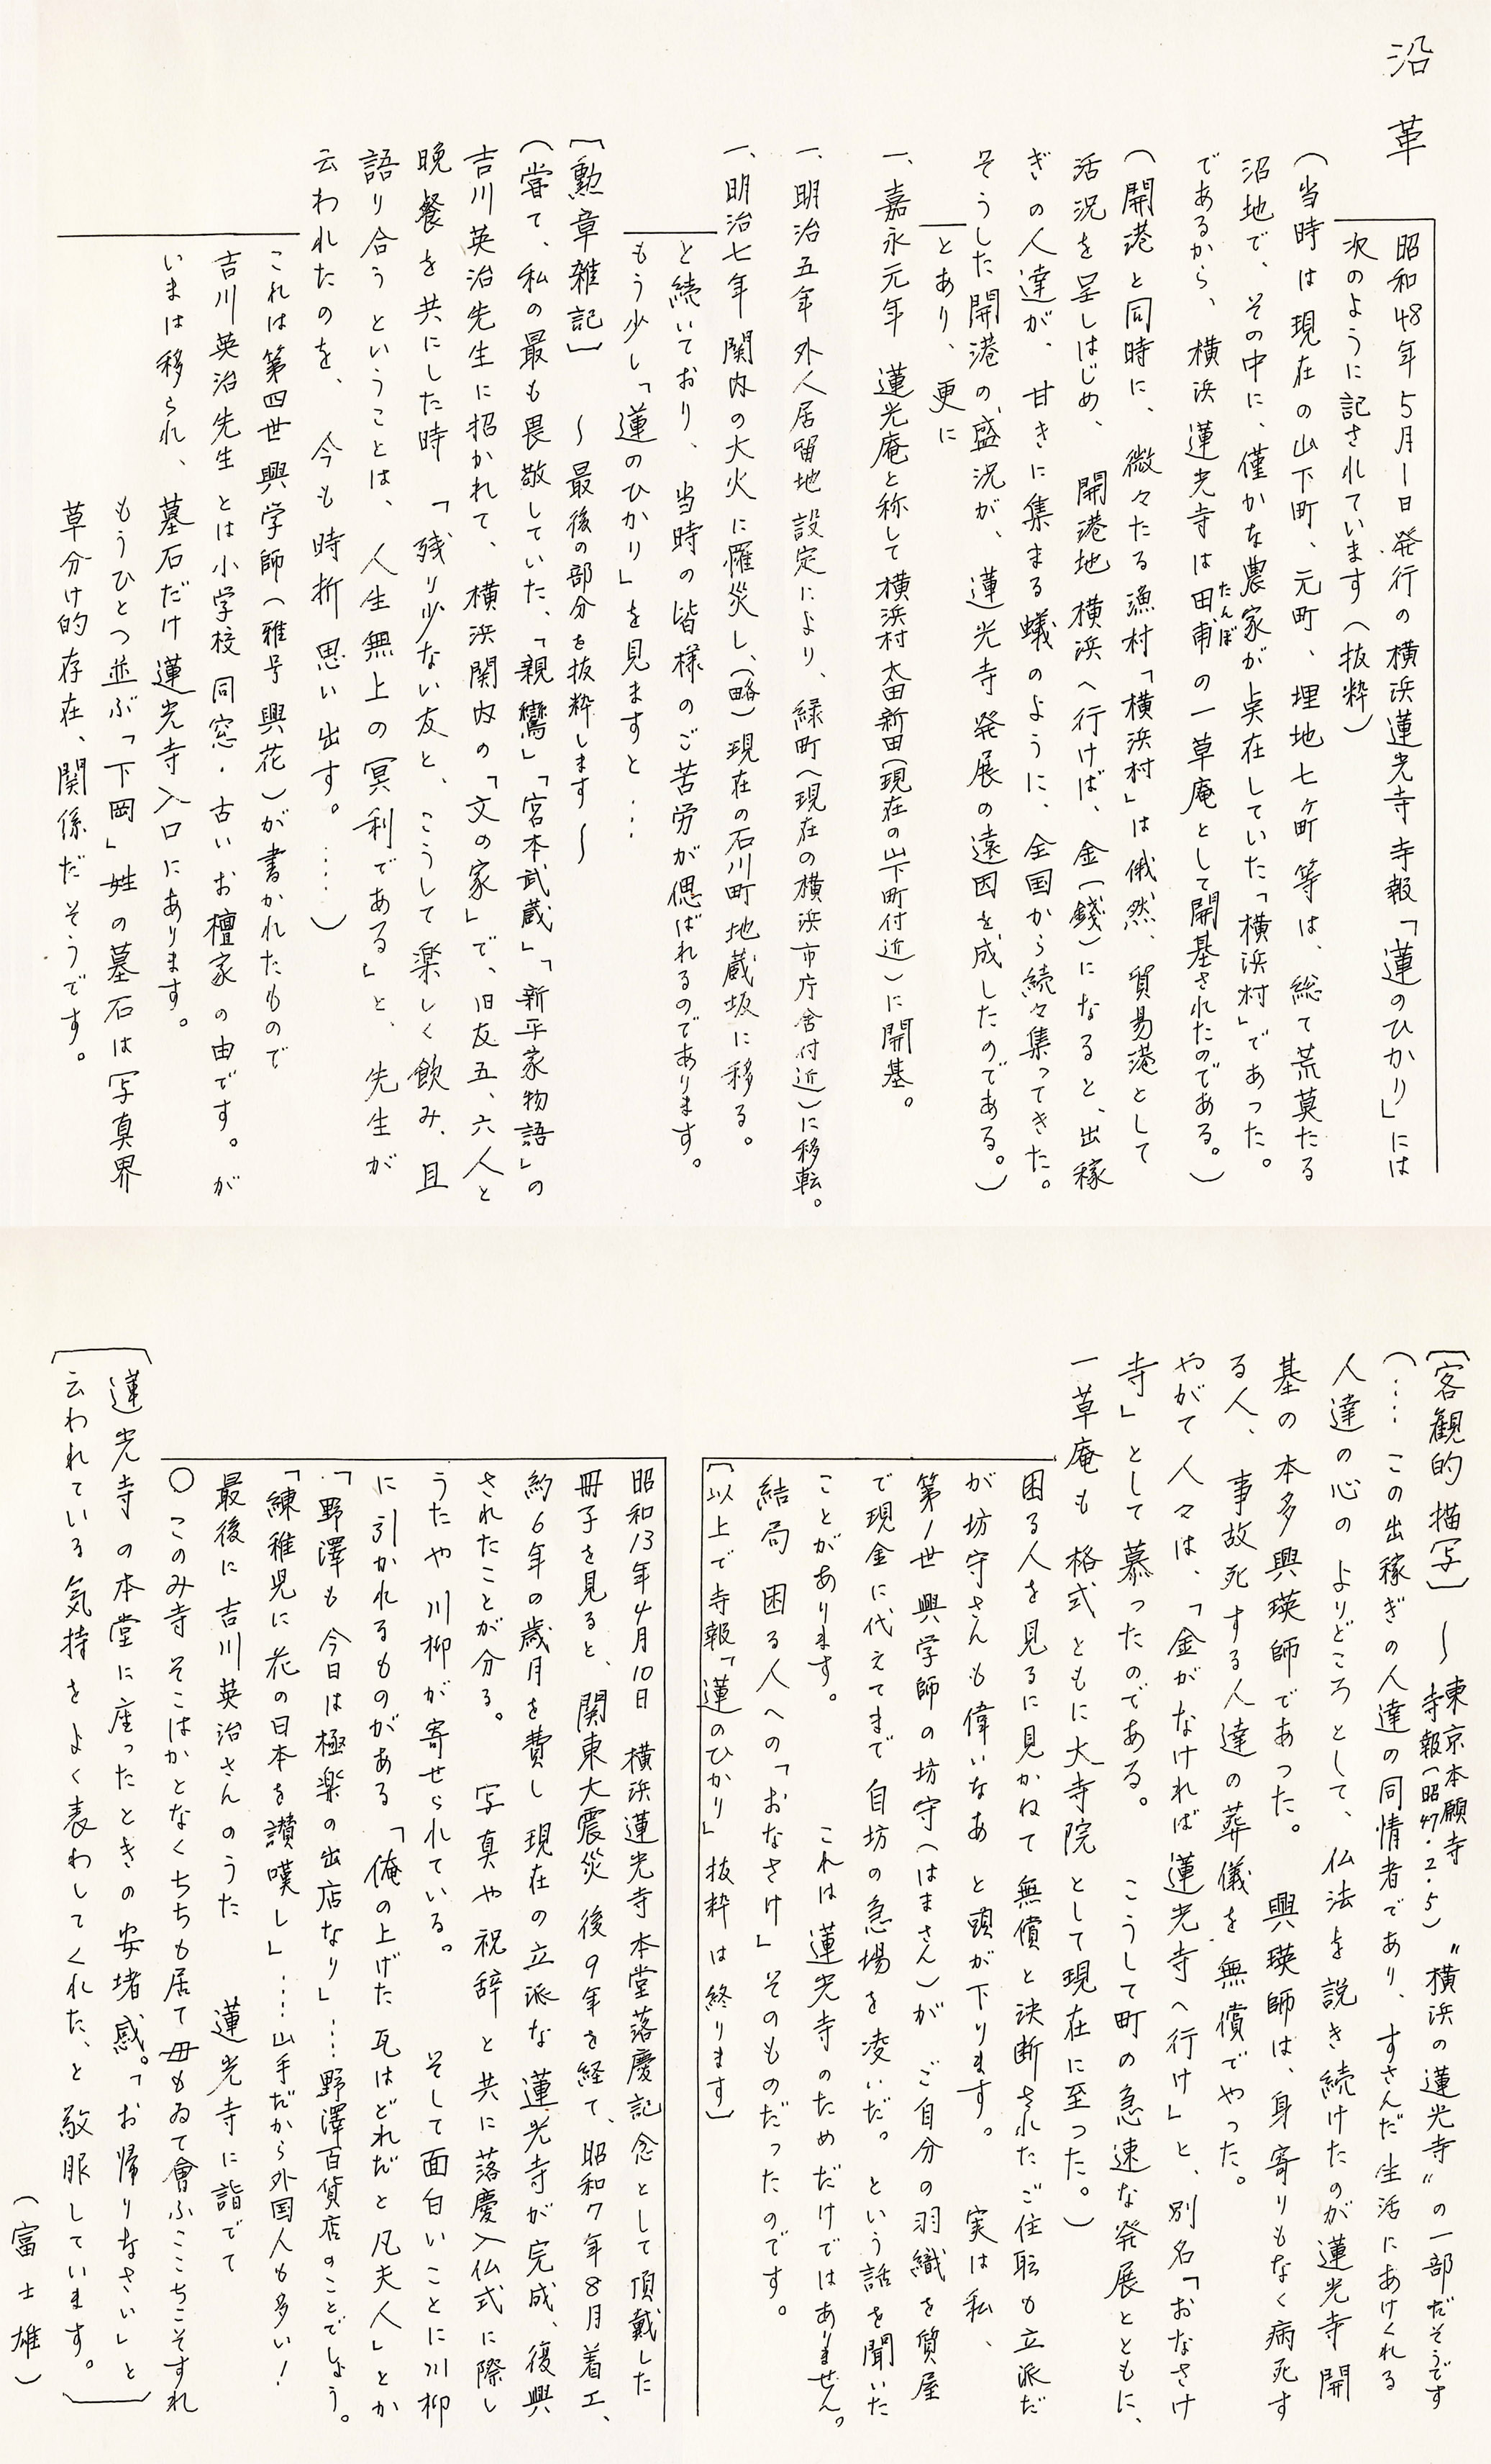 沿革
昭和48年5月1日発行の横浜蓮光寺寺報「蓮のひかり」には
次のように記されています(抜粋)
(当時は現在の山下町、元町、埋地七ヶ町等は、総て荒莫たる
沼地で、その中に、僅かな農家が点在していた「横浜村」であった。
であるから、横浜蓮光寺は田甫の一草庵として開基されたのである。)
たんぼ
(開港と同時に、微々たる漁村「横浜村」は俄然、貿易港として
活況を呈しはじめ、開港地横浜へ行けば、金(錢)になると、出稼
ぎの人達が、甘きに集まる蟻のように、全国から続々集ってきた。
そうした開港の盛況が、蓮光寺発展の遠因を成したのである。)
とあり、更に
一、嘉永元年 蓮光庵と称して横浜村太田新田(現在の山下町付近)に開基。
一、明治五年外人居留地設定により、緑町(現在の横浜市庁舎付近)に移転。
一、明治七年関内の大火に罹災し、(略)現在の石川町地蔵坂に移る。
と続いており、当時の皆様のご苦労が偲ばれるのであります。
もう少し「蓮のひかり」を見ますと…
[勲章雑記] 〜最後の部分を抜粋します〜
(嘗て、私の最も畏敬していた、「親鸞」「宮本武蔵」「新平家物語」の
吉川英治先生に招かれて、横浜関内の「文の家」で、旧友五、六人と
晩餐を共にした時 「残り少ない友と、こうして楽しく飲み、且
語り合うということは、人生無上の冥利である」と、先生が
云われたのを、今も時折思い出す。……)
これは第四世興学師(雅号興花)が書かれたもので
吉川英治先生とは小学校同窓・古いお檀家の由です。が
いまは移られ、墓石だけ蓮光寺入口にあります。
もうひとつ並ぶ「下岡」姓の墓石は写真界
草分け的存在、関係だそうです。
[客観的描写] 〜東京本願寺
寺報(昭47・2・5)〝横浜の蓮光寺〟の一部だそうです
(…この出稼ぎの人達の同情者であり、すさんだ生活にあけくれる
人達の心のよりどころとして、仏法を説き続けたのが蓮光寺開
基の本多興瑛師であった。興瑛師は、身寄りもなく病死す
る人、事故死する人達の葬儀を無償でやった。
やがて人々は、「金がなければ蓮光寺へ行け」と、別名「おなさけ
寺」として慕ったのである。こうして町の急速な発展とともに、
一草庵も格式ともに大寺院として現在に至った。)
困る人を見るに見かねて無償と決断されたご住職も立派だ
が坊守さんも偉いなあと頭が下ります。実は私、
第1世興学師の坊守(はまさん)がご自分の羽織を質屋
で現金に代えてまで自坊の急場を凌いだ。という話を聞いた
ことがあります。これは蓮光寺のためだけではありません。
結局困る人への「おなさけ」そのものだったのです。
[以上で寺報「蓮のひかり」抜粋は終ります]
昭和13年4月10日 横浜蓮光寺本堂落慶記念として頂戴した
冊子を見ると、関東大震災後9年を経て、昭和7年8月着工、
約6年の歳月を費し現在の立派な蓮光寺が完成、復興
されたことが分る。写真や祝辞と共に落慶入仏式に際し
うたや川柳が寄せられている。そして面白いことに川柳
に引かれるものがある「俺の上げた瓦はどれだと凡夫人」とか
「野澤も今日は極楽の出店なり」……野澤百貨店のことでしょう。
「練稚児に花の日本を讃嘆し」……山手だから外国人も多い!
最後に吉川英治さんのうた 蓮光寺に詣でて
○このみ寺そこはかとなくちちも居て母もゐて會ふここちこそすれ
蓮光寺の本堂に座ったときの安堵感。「お帰りなさい」と
云われている気持をよく表わしてくれた、と敬服しています。
(富士雄)